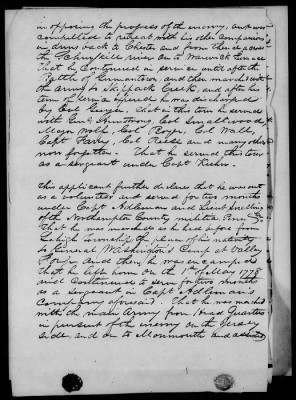 in opposing the progress of the enemy, but was
compelled to retreat with his other companions
in arms back to Chester and from thence across
the Schuylkill river on to Warwick Furnace
that he continued in service until after the
Battle of Germantown, and then marched with
the army to Skippack Creek, and after his
term of service expired he was discharged
by Capt That on this tour he served
with Genl Armstrong, Col Smallwood,
Major Wolf, Col Roger, Col Wall,
Capt Col and many others
now forgotten. That he served this tour
as a sergeant under Capt
This applicant further declares that he was out
as a volunteer and served for two months
under Capt Adleman and Lieut Snider
of the Northampton County militia Penn
That he was marched as he had before from
Lehigh township the place of his nativity
to General Washington's Camp at Valley
Forge and then he was encamped
that he left home on the 1st of May 1778
and continued to serve for two months
as a sergeant in Capt Adleman's
company aforesaid. That he was marched
with the main army from Head Quarters
in pursuit of the enemy on the Jersey
side and on to Monmouth and